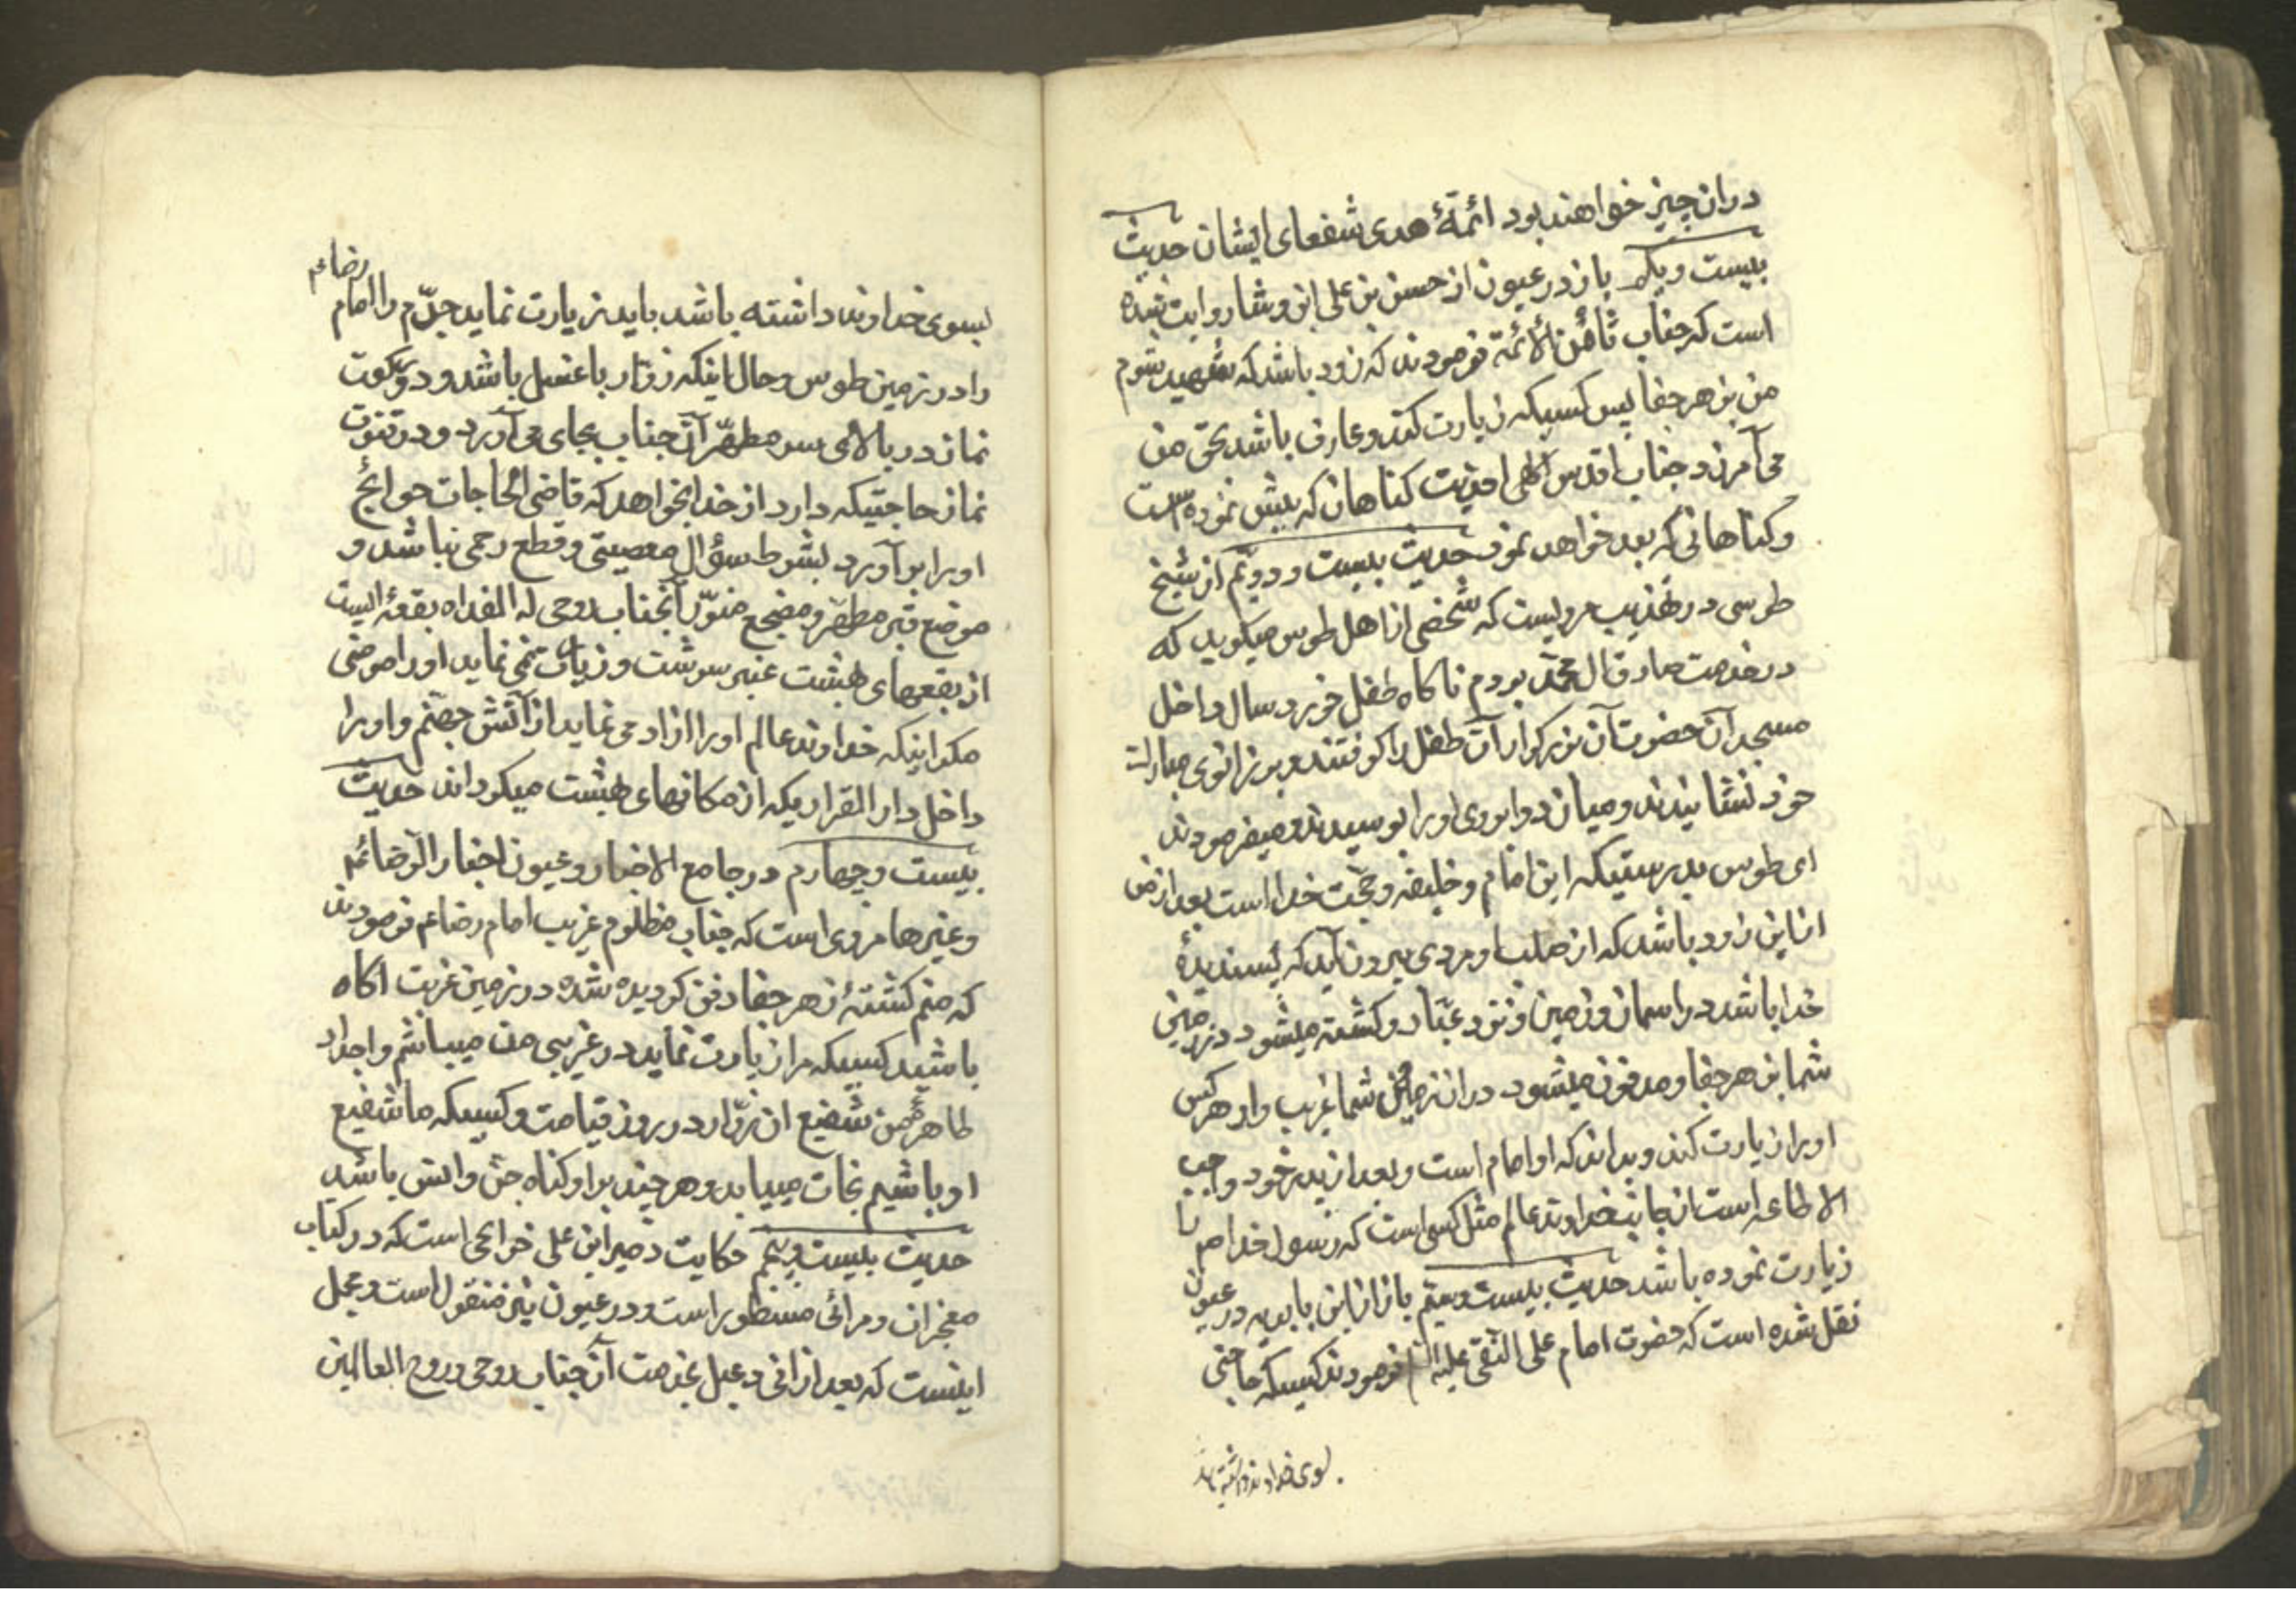 دران چیز خواهند بود ائمّهٔ هدی شفعای ایشان حدیث
بیست ویکم باز در عیون از حسن بن علی ابن وشا روایت شده
است که جناب ثامن الائمة فرمودند که زود باشد که شهید شوم
من بزهر جفا پس کسیکه زیارت کند وعارف باشد بحق من
می آمرزد جناب اقدس الهی اخذیت کناهان که پیش نموده است
وکناهانی که بعد خواهد نمود حدیث بیست ودویّم از شیخ
طوسی در تهذیب مرویست که شخصی از اهل طوس میکوید که
درخدمت صادق ال محمّد بودم ناکاه طفل خورد سال داخل
مسجد آن حضرت آن بزرکوار آن طفل را کرفتند وبر زانوی مبارک
خود نشانیدند ومیان دو ابروی او را بوسیدند ومیفرمودند
ای طوس بدرستیکه این امام وخلیفه وحجّت خدا است بعد از من
از این زود باشد که از صلب او مردی بیرون آید که پسندیدهٔ
خدا باشد در اسمان وزمین ونزد عبّاد وکشته میشود در زمین
شما بزهر جفا ومدفون میشود دران زمین شما غریب وار هر کس
اورا زیارت کند وبداند که او امام است وبعد از پدر خود واجب
الاطاعه است از جانب خداوند عالم مثل کسی است که رسول خدا ص را
زیارت نموده باشد حدیث بیست وسیّم باز از ابن بابویه در عیون
نقل شده است که حضرت امام علی النقی علیه السلام فرمودند کسیکه حاجتی
بسوی خداوند داشته باشد
رضا عم
بسوی خداوند داشته باشد باید زیارت نماید جدّم را امام
را در زمین طوس وحال اینکه زوّار با غسل باشد ودو رکعت
نماز در بالای سر مطهّر آن جناب بجای می آورد ودر قنوت
نماز حاجتیکه دارد از خدا بخواهد که قاضی الحاجات حوائج
اورا بر آورد بشرط سؤال معصیتی وقطع رحمی نباشد و
موضع قبر مطهّر ومضجع منوّر آنجناب روحی له الفداه بقعهٔ ایست
از بقعهای بهشت عنبر سرشت وزیارت نمی نماید اورا مومنی
مکر اینکه خداوند عالم اورا ازاد می نماید از آتش جهنّم واورا
داخل دار القراریکه از مکانهای بهشت میکرداند حدیث
بیست وچهارم در جامع الاخبار وعیون اخبار الرّضا عم
وغیرها مروی است که جناب مظلوم غریب امام رضا عم فرمودند
که منم کشتهٔ زهر جفا دفن کردیده شده در زمین غربت اکاه
باشید کسیکه مرا زیارت نماید در غریبی من میباشم واجداد
طاهرین من شفیع ان زوّار در روز قیامت وکسیکه ما شفیع
او باشیم نجات مییابد وهر چند بر او کناه جن وانس باشد
حدیث بیست وپنجم حکایت دعبل ابن علی خزاعی است که در کتاب
معجزات ومراثی مسطور است ودر عیون نیز منقول است ومجمل
اینست که بعد از انی دعبل بخدمت آن جناب روحی وروح العالمین